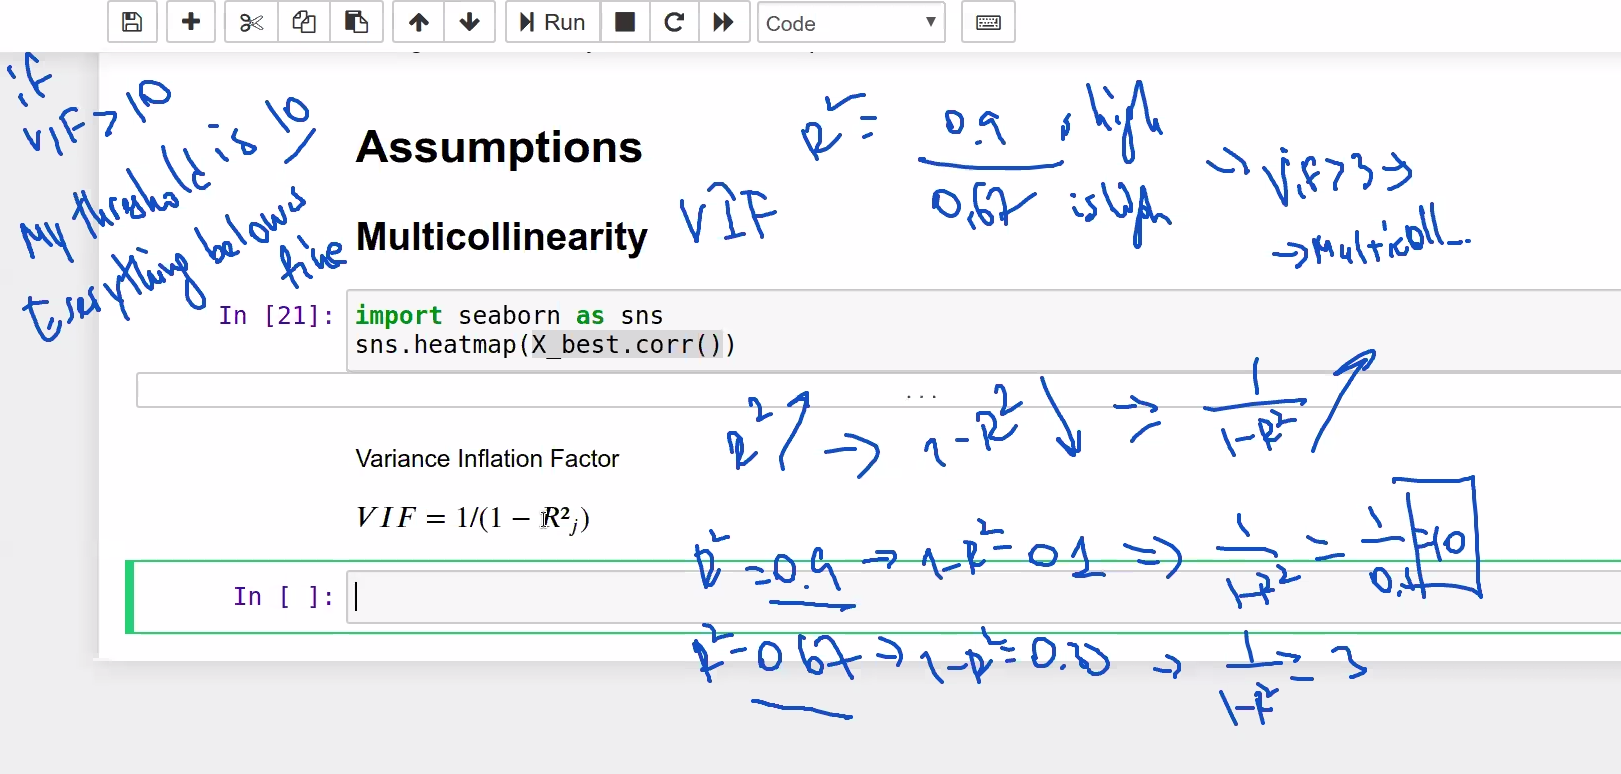 Run
Code
if
VIF > 10
My threshold is 10
Everything below is
fine
Assumptions
Multicollinearity
VIF
R² =
0.9 is high
0.67 is high
→ Vif > 3 →
→ Multicoll...
In [21]: import seaborn as sns
sns.heatmap(X_best.corr())
...
R² ↗ → 1-R² ↓ ⇒ 1/(1-R²) ↗
Variance Inflation Factor
VIF = 1/(1 − R²ⱼ)
R² = 0.9 → 1-R² = 0.1 ⇒ 1/(1-R²) = 1/0.1 = 10
In [ ]:
R² = 0.67 ⇒ 1-R² = 0.33 ⇒ 1/(1-R²) = 3